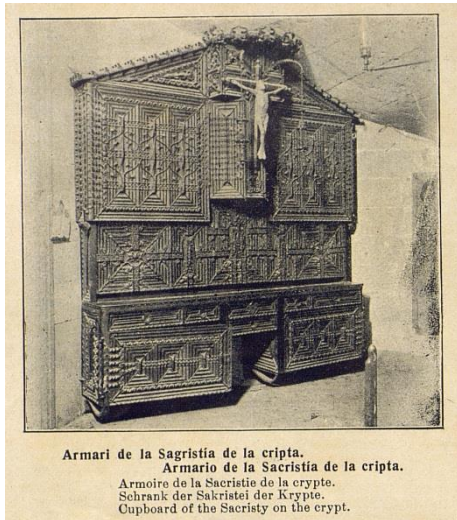 Armari de la Sagristía de la cripta.
Armario de la Sacristía de la cripta.
Armoire de la Sacristie de la crypte.
Schrank der Sakristei der Krypte.
Cupboard of the Sacristy on the crypt.